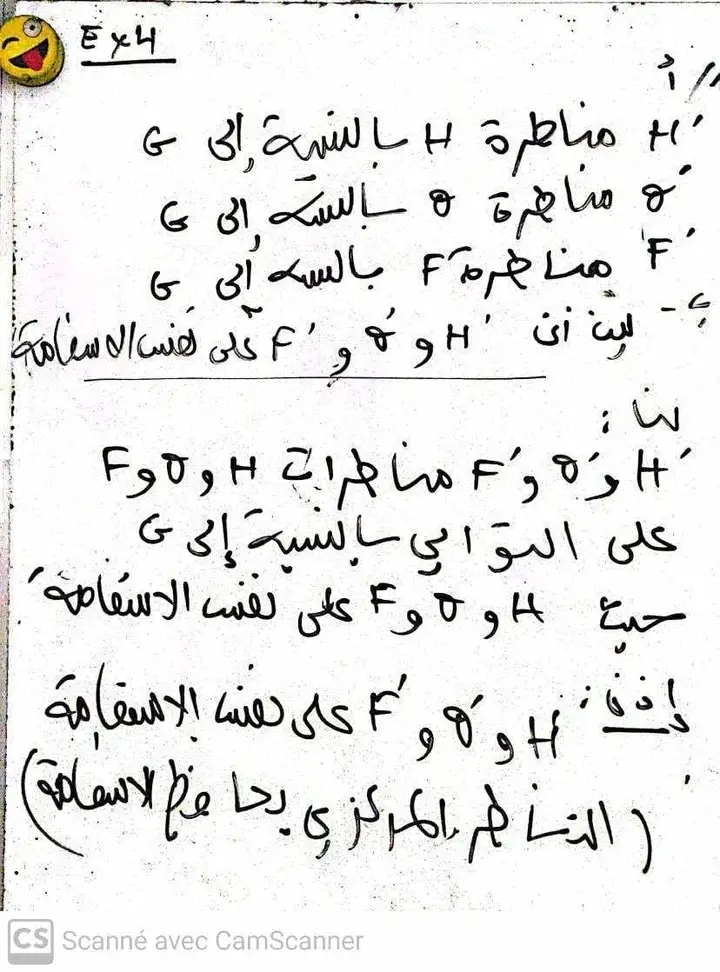 Ex4
1/ أ
H' مناظرة H بالنسبة إلى G
O' مناظرة O بالنسبة إلى G
F' مناظرة F بالنسبة إلى G
ب - لنبين أن H' و O' و F' على نفس الاستقامة
لنا :
H' و O' و F' مناظرات H و O و F
على التوالي بالنسبة إلى G
حيث H و O و F على نفس الاستقامة
إذن : H' و O' و F' على نفس الاستقامة
( التناظر المركزي يحافظ الاستقامة )
CS Scanné avec CamScanner